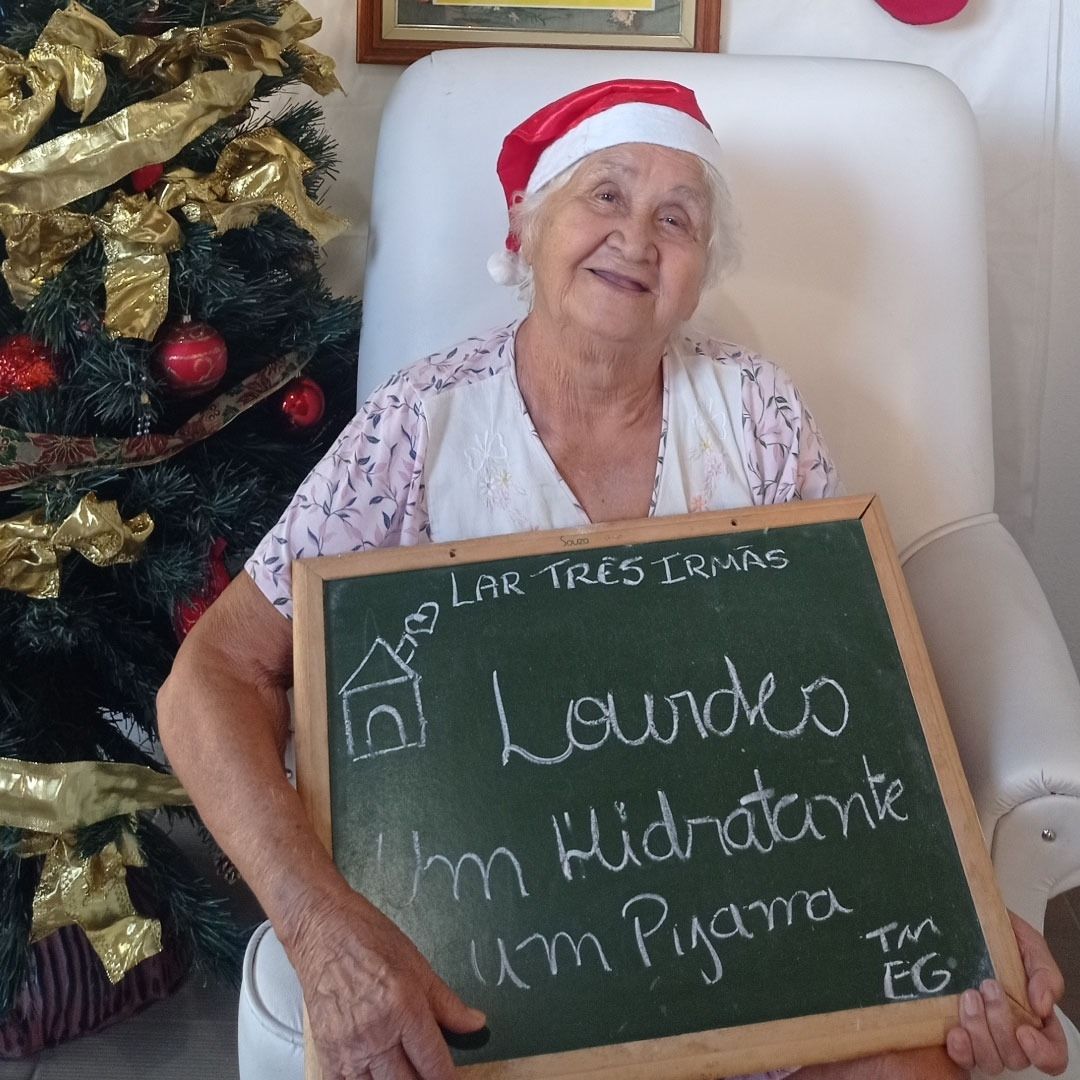 Souza
LAR TRÊS IRMÃS
Lourdes
Um Hidratante
um Pijama
TM
EG